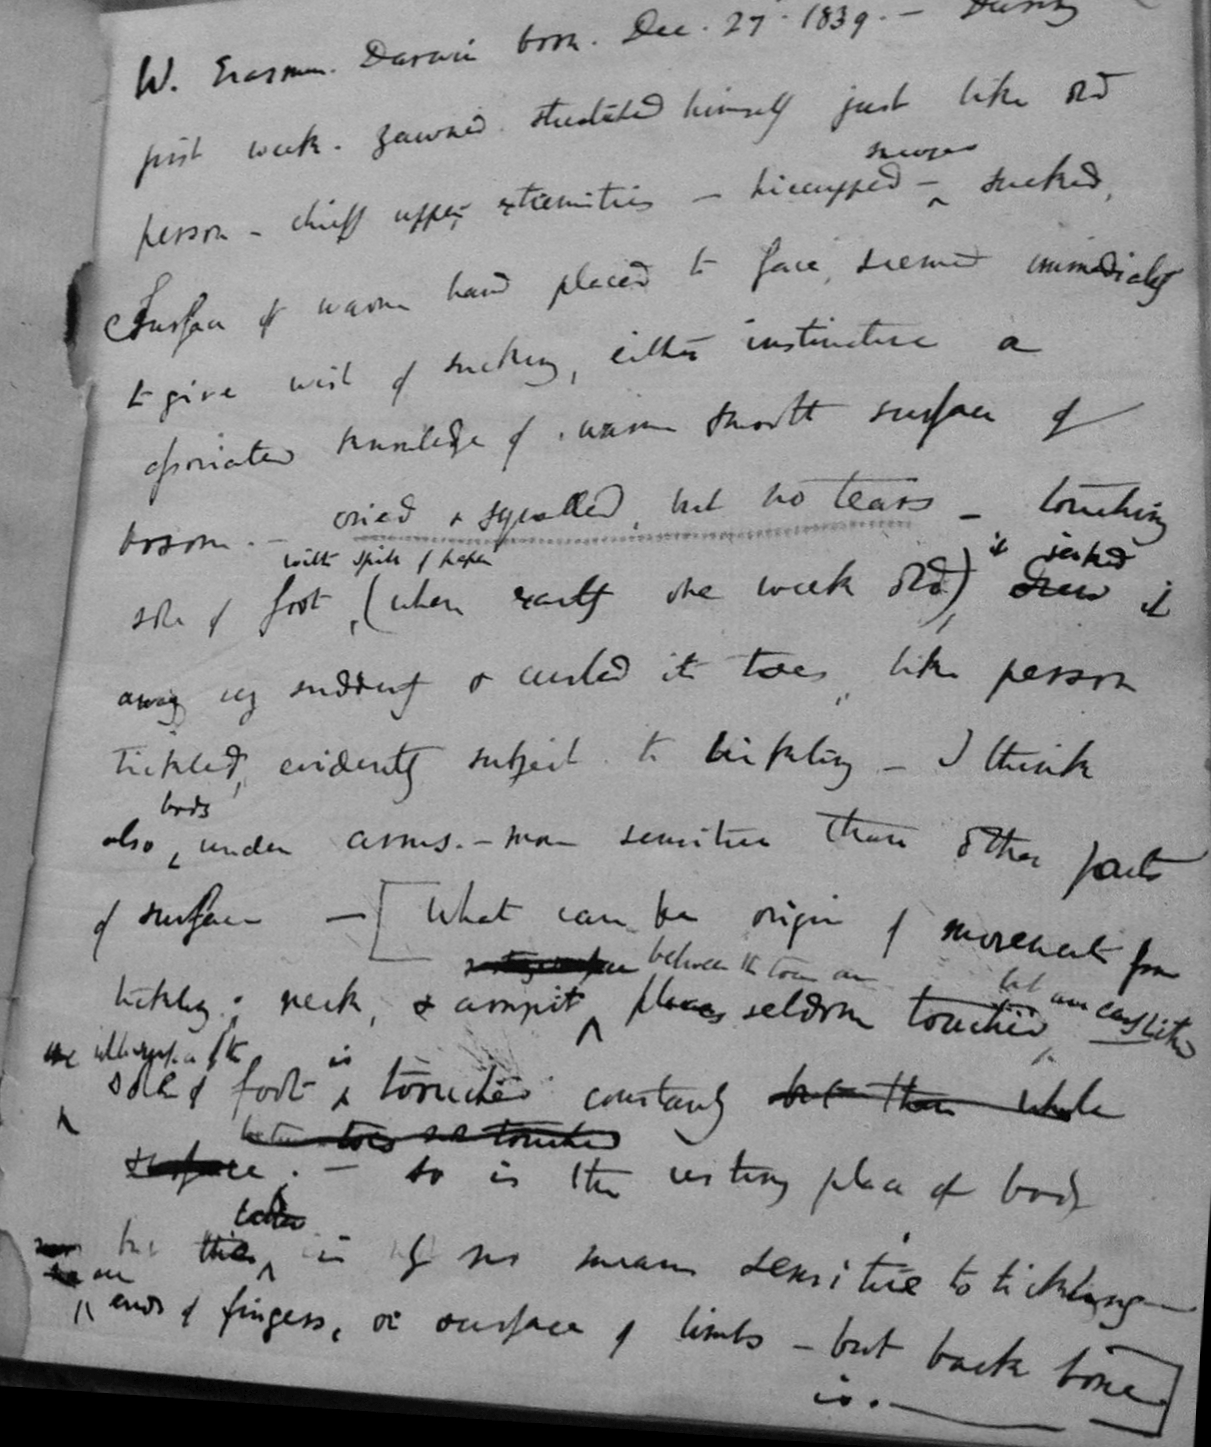 W. Erasmus. Darwin born. Dec. 27. 1839. — During
first week. yawned. streatched himself just like old
person — chiefly upper extremities — hiccupped — sneezes sucked,
Surface of warm hand placed to face, seemed immediately
to give wish of sucking, either instinctive or
associated knowledge of warm smooth surface of
bosom. — cried & squalled, but no tears — touching
sole of foot with spill of paper, (when exactly one week old), it jerked it
away very suddenly & curled its toes, like person
tickled, evidently subject to tickling — I think
also body under arms. — more sensitive than other parts
of surface — [What can be origin of movement from
tickling; neck, & armpit between the toes are places seldom touched but are easily
sole of foot is touched constantly but then whole
between toes are touched
surface. — so is the resting place of body
but this is by no means sensitive to tickling —
are ends of fingers, or surface of limbs — but back bone
is. —